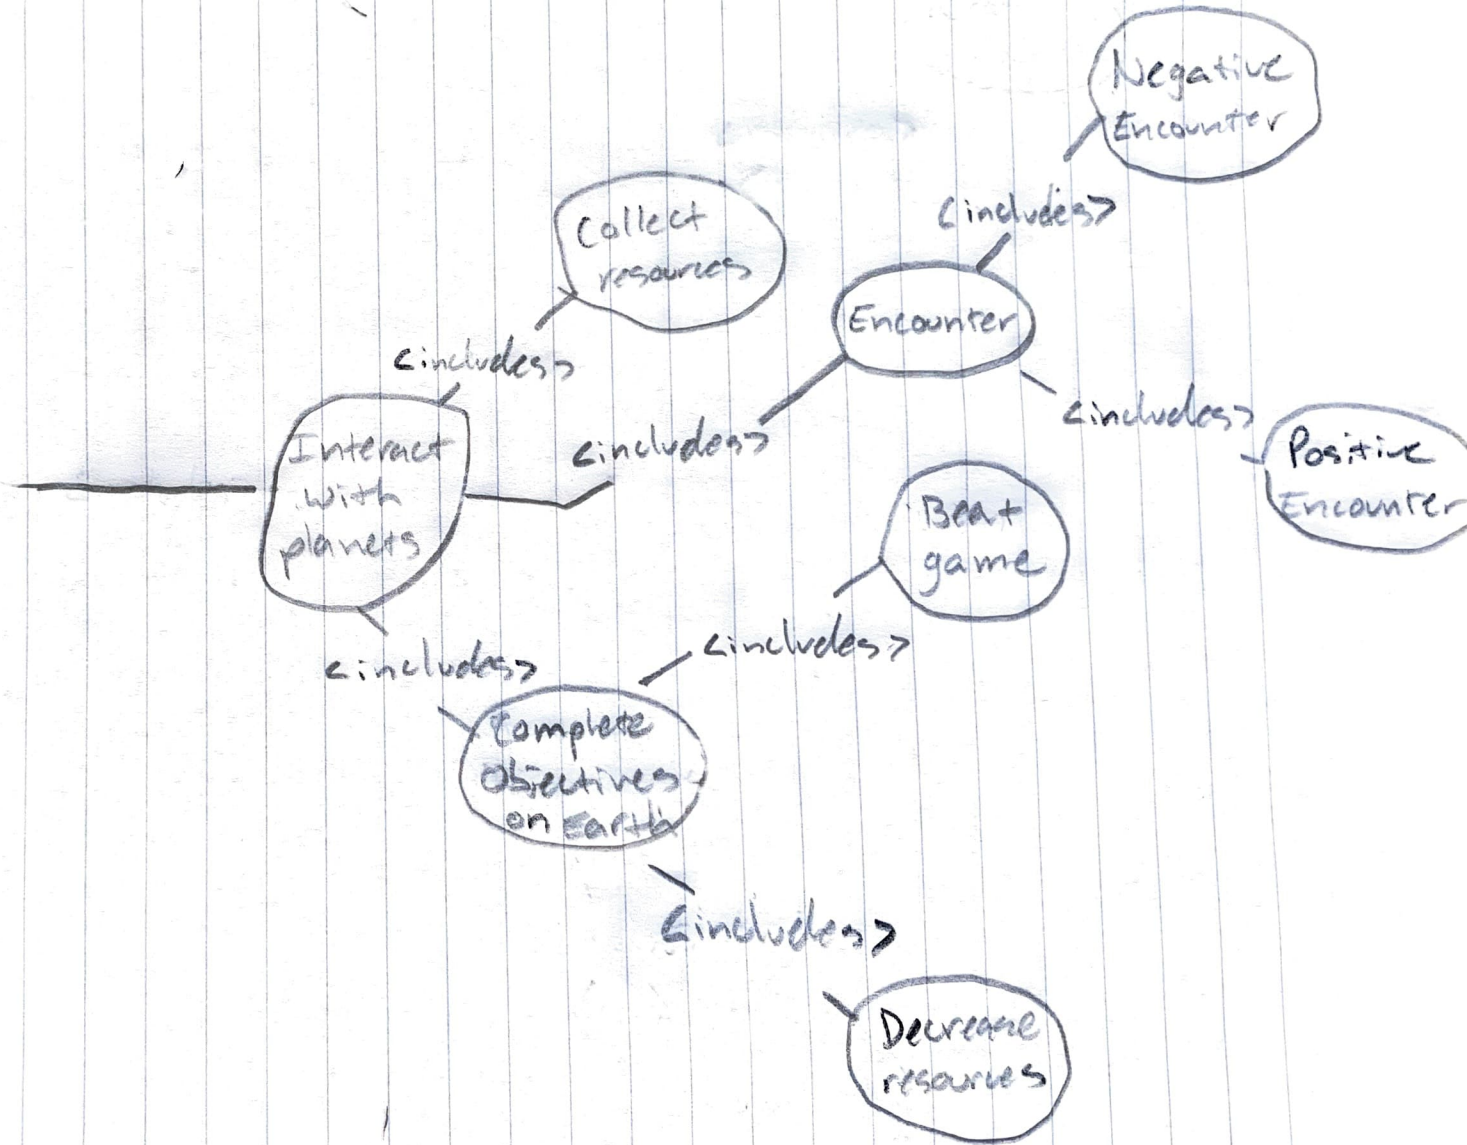 Negative
Encounter
<includes>
Collect
resources
Encounter
<includes>
<includes>
Positive
Encounter
<includes>
Interact
with
planets
Beat
game
<includes>
<includes>
Complete
Objectives
on Earth
<includes>
Decrease
resources